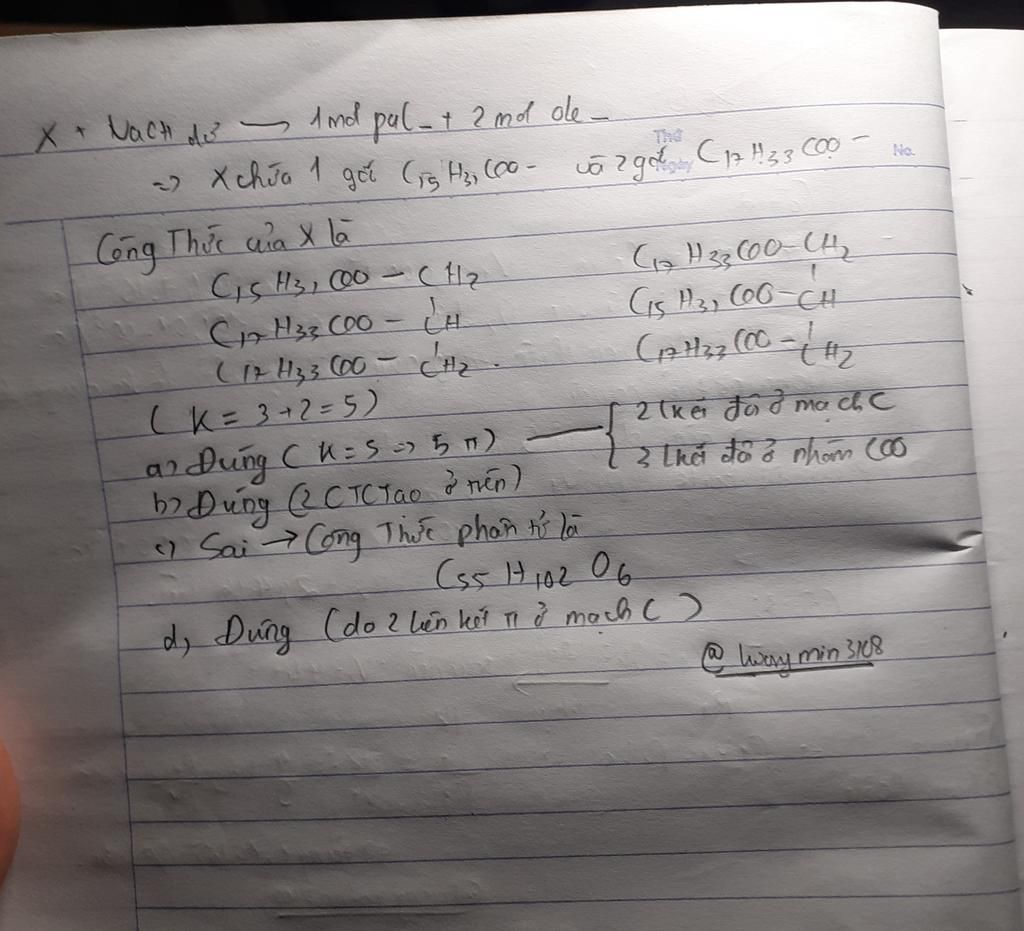 X + NaOH dư → 1 mol pal_ + 2 mol ole_
Thứ
Ngày
No.
=> X chứa 1 gốc C15H31COO - và 2 gốc C17H33COO -
Công Thức của X là
C15H31COO - CH2
C17H33COO - CH
C17H33COO - CH2
C17H33COO - CH2
C15H31COO - CH
C17H33COO - CH2
( K = 3 + 2 = 5 )
a) Đúng ( K = 5 => 5 π ) — { 2 lkết đôi ở mạch C
3 lkết đôi ở nhóm COO
b) Đúng (2 CTCTạo ở trên)
c) Sai → Công Thức phân tử là
C55H102O6
d, Đúng (do 2 liên kết π ở mạch C )